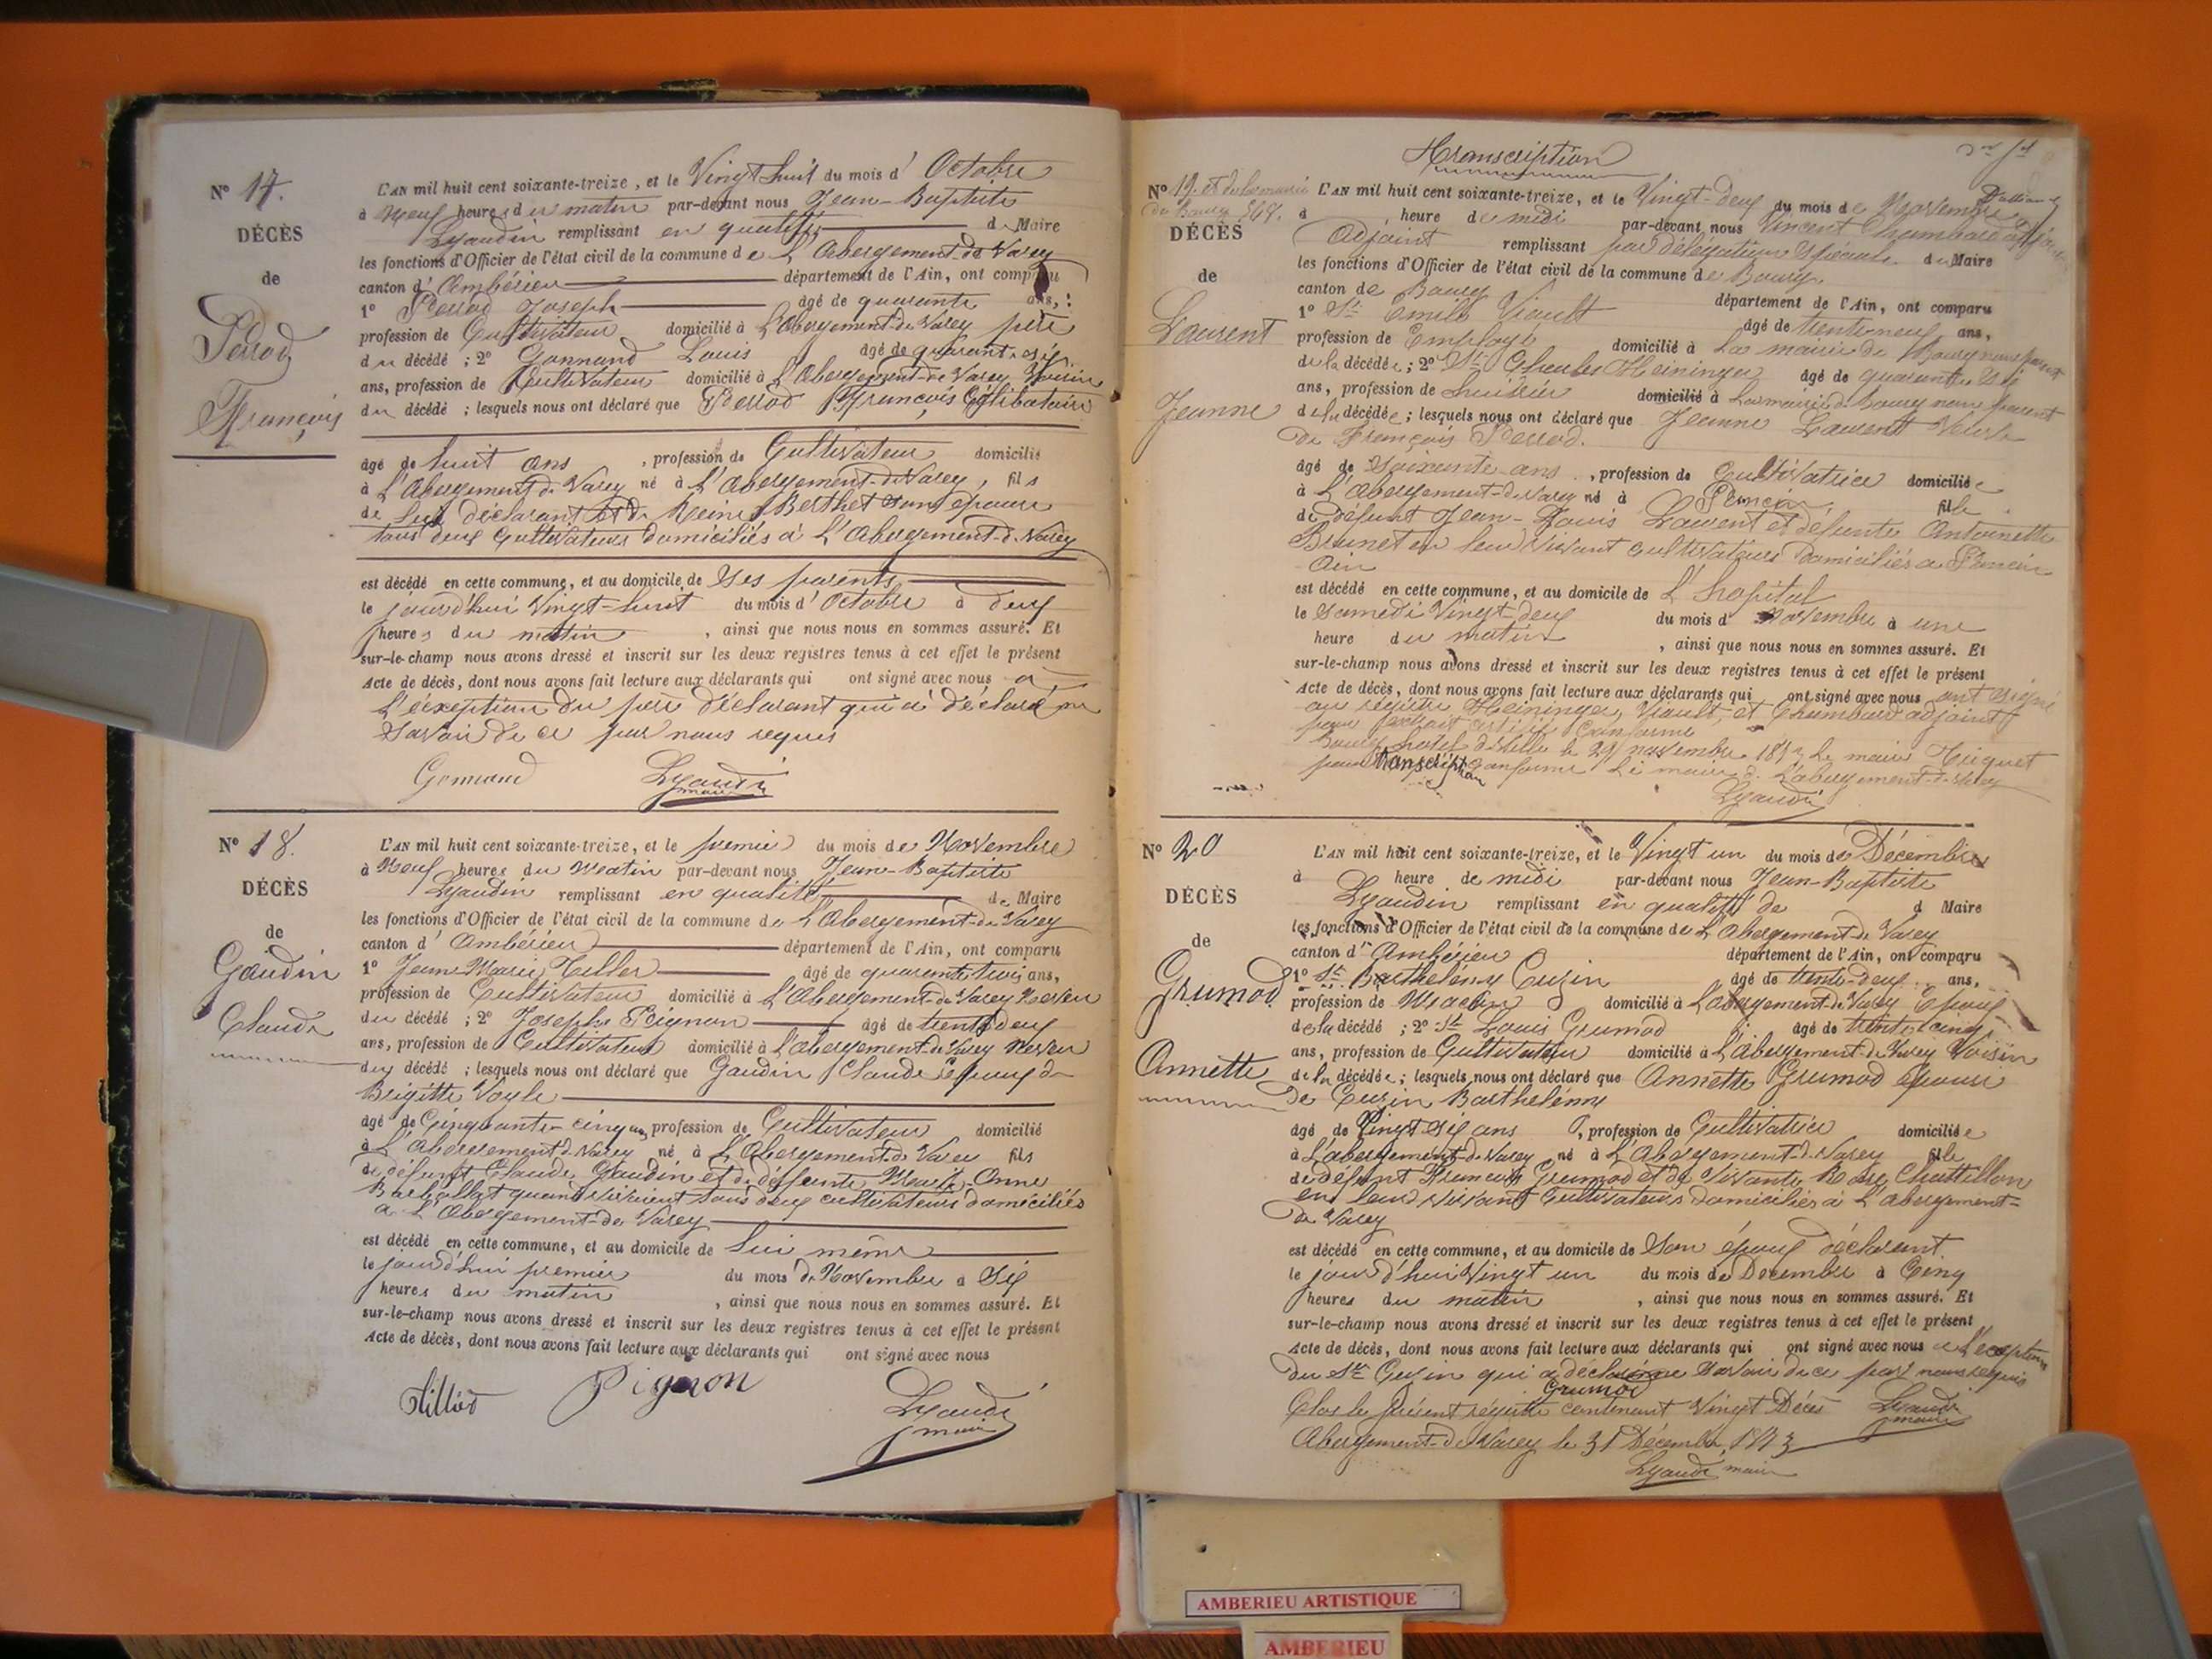 N° 17.
DÉCÈS
de
Perrod
François
L'AN mil huit cent soixante-treize, et le Vingt huit du mois d' Octobre
à Neuf heures du matin par-devant nous Jean-Baptiste
Lyaudin remplissant en qualité de Maire
les fonctions d'Officier de l'état civil de la commune de L'Abergement-de Varey
canton d' Ambérieu département de l'Ain, ont comparu
1° Perrod Joseph âgé de quarante ans,
profession de Cultivateur domicilié à L'Abergement-de Varey père
du décédé ; 2° Gonnand Louis âgé de quarante six
ans, profession de Cultivateur domicilié à L'Abergement-de Varey Voisin
du décédé ; lesquels nous ont déclaré que Perrod François Célibataire
âgé de huit ans , profession de Cultivateur domicilié
à L'Abergement-de Varey né à L'Abergement-de Varey, fils
de déclarant et de Reine Berthet son épouse
tous deux Cultivateurs domiciliés à L'Abergement-de Varey
est décédé en cette commune, et au domicile de Ses parents
le jourd'hui Vingt-huit du mois d' Octobre à deux
heures du matin , ainsi que nous nous en sommes assuré. Et
sur-le-champ nous avons dressé et inscrit sur les deux registres tenus à cet effet le présent
Acte de décès, dont nous avons fait lecture aux déclarants qui ont signé avec nous a
L'exeption du père déclarant qui a déclaré ne
Savoir de ce par nous requis
Gonnand Lyaudin
maire
N° 18.
DÉCÈS
de
Gaudin
Claude
L'AN mil huit cent soixante-treize, et le premier du mois de Novembre
à Neuf heures du Matin par-devant nous Jean-Baptiste
Lyaudin remplissant en qualité de Maire
les fonctions d'Officier de l'état civil de la commune de L'Abergement-de Varey
canton d' Ambérieu département de l'Ain, ont comparu
1° Jean Marie âgé de quarante trois ans,
profession de Cultivateur domicilié à L'Abergement-de Varey Neveu
du décédé ; 2° Joseph Pignon âgé de trente deux
ans, profession de Cultivateur domicilié à L'abergement-de Varey neveu
du décédé ; lesquels nous ont déclaré que Gaudin Claude époux de
Brigitte
âgé de Cinquante-cinq ans profession de Cultivateur domicilié
à L'Abergement-de Varey né à L'Abergement-de Varey fils
de défunt Claude Gaudin et de défunte Marie-Anne
quand vivaient tous deux cultivateurs domiciliés
à L'Abergement-de Varey
est décédé en cette commune, et au domicile de Lui même
le jourd'hui premier du mois de Novembre à Six
heures du matin , ainsi que nous nous en sommes assuré. Et
sur-le-champ nous avons dressé et inscrit sur les deux registres tenus à cet effet le présent
Acte de décès, dont nous avons fait lecture aux déclarants qui ont signé avec nous
Pignon Lyaudin
maire
Transcription
N° 19. et de la mairie
de Bourg 567.
DÉCÈS
de
Laurent
Jeanne
L'AN mil huit cent soixante-treize, et le Vingt-deux du mois de Novembre
à heure de midi par-devant nous Vincent Chambard
Adjoint remplissant par délégation Spéciale du Maire
les fonctions d'Officier de l'état civil de la commune de Bourg
canton de Bourg département de l'Ain, ont comparu
1° Sr Emile Viault âgé de trente neuf ans,
profession de Employé domicilié à La mairie de Bourg non parent
de la décédée ; 2° Sr Charles Heininger âgé de quarante six
ans, profession de huissier domicilié à La mairie de Bourg non parent
de la décédée ; lesquels nous ont déclaré que Jeanne Laurent Veuve
de François Perrod.
âgé de Soixante ans , profession de Cultivatrice domiciliée
à L'abergement-de Varey né à Poncin fille
de défunt Jean-Louis Laurent et défunte Antoinette
Brunet en leur vivant cultivateurs domiciliés à Poncin
Ain
est décédé en cette commune, et au domicile de L'hopital
le Samedi Vingt-deux du mois d Novembre à une
heure du matin , ainsi que nous nous en sommes assuré. Et
sur-le-champ nous avons dressé et inscrit sur les deux registres tenus à cet effet le présent
Acte de décès, dont nous avons fait lecture aux déclarants qui ont signé avec nous ont signé
au registre Heininger, Viault, et Chambard adjoint
pour extrait certifié Conforme
Bourg hotel de Ville le 29 novembre 1873 le maire
pour transcription conforme Le maire de L'abergement-de Varey
Lyaudin
N° 20
DÉCÈS
de
Grumod
Annette
L'AN mil huit cent soixante-treize, et le Vingt un du mois de Décembre
à heure de midi par-devant nous Jean-Baptiste
Lyaudin remplissant en qualité de d Maire
les fonctions d'Officier de l'état civil de la commune de L'Abergement-de Varey
canton d' Ambérieu département de l'Ain, ont comparu
1° Sr Barthelémy Cuzin âgé de trente-deux ans,
profession de Maçon domicilié à L'abergement-de Varey Epoux
de la décédé ; 2° Sr Louis Grumod âgé de trente cinq
ans, profession de Cultivateur domicilié à L'abergement-de Varey Voisin
de la décédée ; lesquels nous ont déclaré que Annette Grumod épouse
de Cuzin Barthelémy
âgé de Vingt six ans , profession de Cultivatrice domiciliée
à L'abergement-de Varey né à L'Abergement-de Varey fille
de défunt François Grumod et de Vivante Rose Chatillon
en leur vivant Cultivateurs domiciliés à L'abergement-
de Varey
est décédé en cette commune, et au domicile de Son époux déclarant
le jourd'hui Vingt un du mois de Décembre à Cinq
heures du matin , ainsi que nous nous en sommes assuré. Et
sur-le-champ nous avons dressé et inscrit sur les deux registres tenus à cet effet le présent
Acte de décès, dont nous avons fait lecture aux déclarants qui ont signé avec nous a L'exception
du Sr Cuzin qui a déclaré ne Savoir de ce par nous requis
Grumod
Clos le présent régistre contenant Vingt Décès Lyaudin
maire
Abergement-de Varey le 31 Décembre 1873
Lyaudin maire
AMBERIEU ARTISTIQUE
AMBERIEU